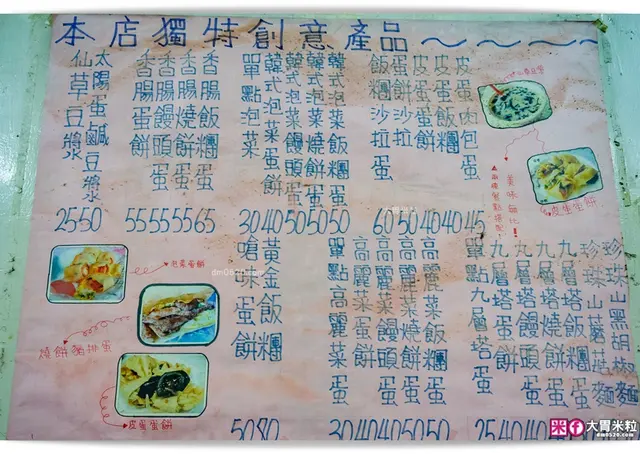 本店獨特創意產品~~~~
仙草豆漿
太陽蛋鹹豆漿
香腸蛋餅
香腸饅頭蛋
香腸燒餅蛋
香腸飯糰蛋
單點泡菜
韓式泡菜蛋餅
韓式泡菜饅頭蛋
韓式泡菜燒餅蛋
韓式泡菜飯糰蛋
飯糰沙拉蛋
蛋餅沙拉
皮蛋蛋餅
皮蛋燒餅
皮蛋肉包蛋
25 50 55 55 55 65 30 40 50 50 50 60 50 40 40 45
美味無比!
皮蛋蛋餅
泡菜蛋餅
燒餅豬排蛋
皮蛋蛋餅
嗆味蛋餅
黃金飯糰
單點高麗菜蛋
高麗菜蛋餅
高麗菜饅頭蛋
高麗菜燒餅蛋
高麗菜飯糰蛋
單點九層塔蛋
九層塔蛋餅
九層塔饅頭蛋
九層塔燒餅蛋
九層塔飯糰蛋
珍珠山蘑菇麵
珍珠山黑胡椒麵
50 80 30 40 40 50 50 25 40 40
dm0520.com
大胃米粒
dm0520.com